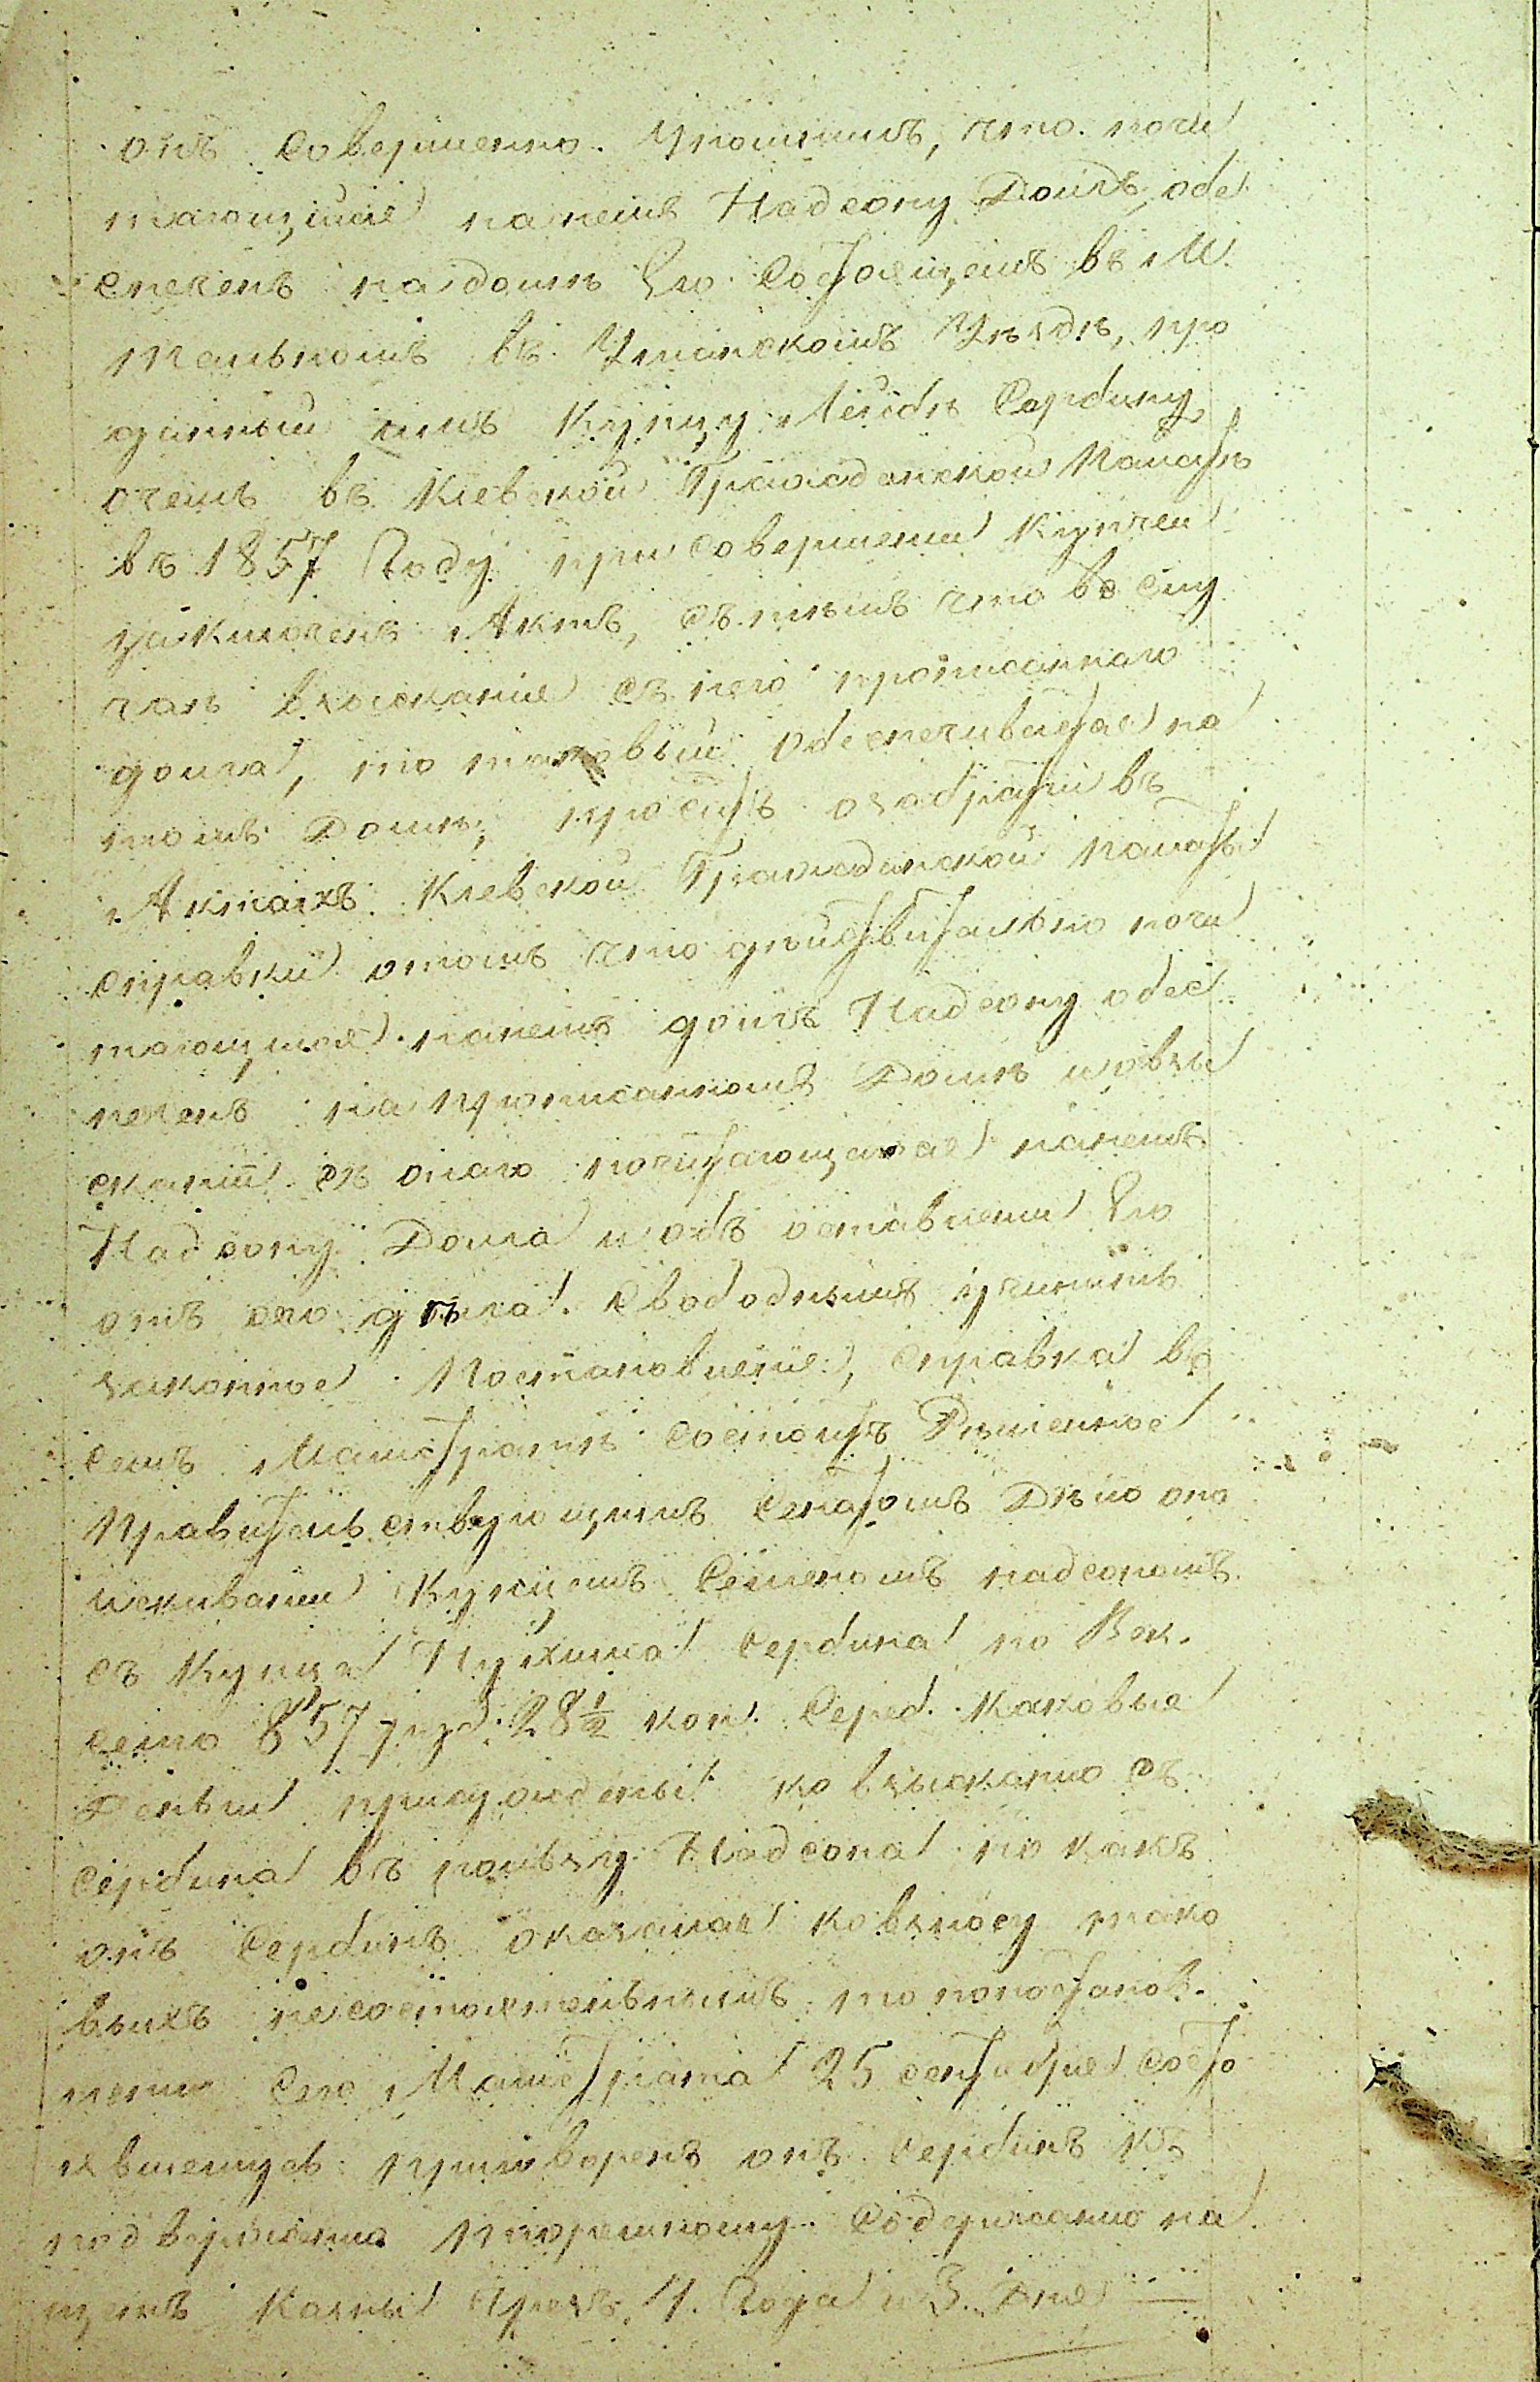 онъ совершенно упомнилъ, что почи
тающийся на немъ Надсону Долгъ, обе
спеченъ на домѣ Его Состоящемъ въ М.
Тальномъ въ Уманскомъ Уѣздѣ, про
данный имъ Купцу Лейбѣ Сербину,
очемъ въ Киевской Гражданской Палатѣ
въ 1857 Году при совершении купчей
заключенъ Актъ, съ тѣмъ что въ слу
чаѣ взыскания съ него прописаннаго
долга, то таковый обеспечивается на
томъ Домѣ, проситъ озабрати въ
Актахъ Киевской Гражданской Палаты
справки отомъ что дѣйствительно почи
тающийся на немъ долгъ Надсону обес
печенъ на прописанномъ Домѣ и овзы
скании съ онаго почитающагося на немъ
Надсону Долга и объ оставлении Его
отъ сего дѣла свободнымъ учинить
законное Постановление, справка въ
семъ Магистратѣ состоитъ Рѣшенное
Правительствующимъ Сенатомъ Дѣло опо
искивании Купцемъ Семеномъ Надсономъ
съ Купца Нухима Сербина по Век.
селю 857 руб. 28½ коп. Сереб. каковые
Деньги присуждены ко взысканию съ
Сербина въ пользу Надсона но какъ
онъ Сербинъ оказался ко взносу тако
выхъ несостоятельнымъ то попостанов.
лении сего Магистрата 25 сентября состо
явшемуся приговоренъ онъ Сербинъ къ
подвержению тюремному содержанию на
щетъ Казны Чрезъ 1. Года и 3. Дня